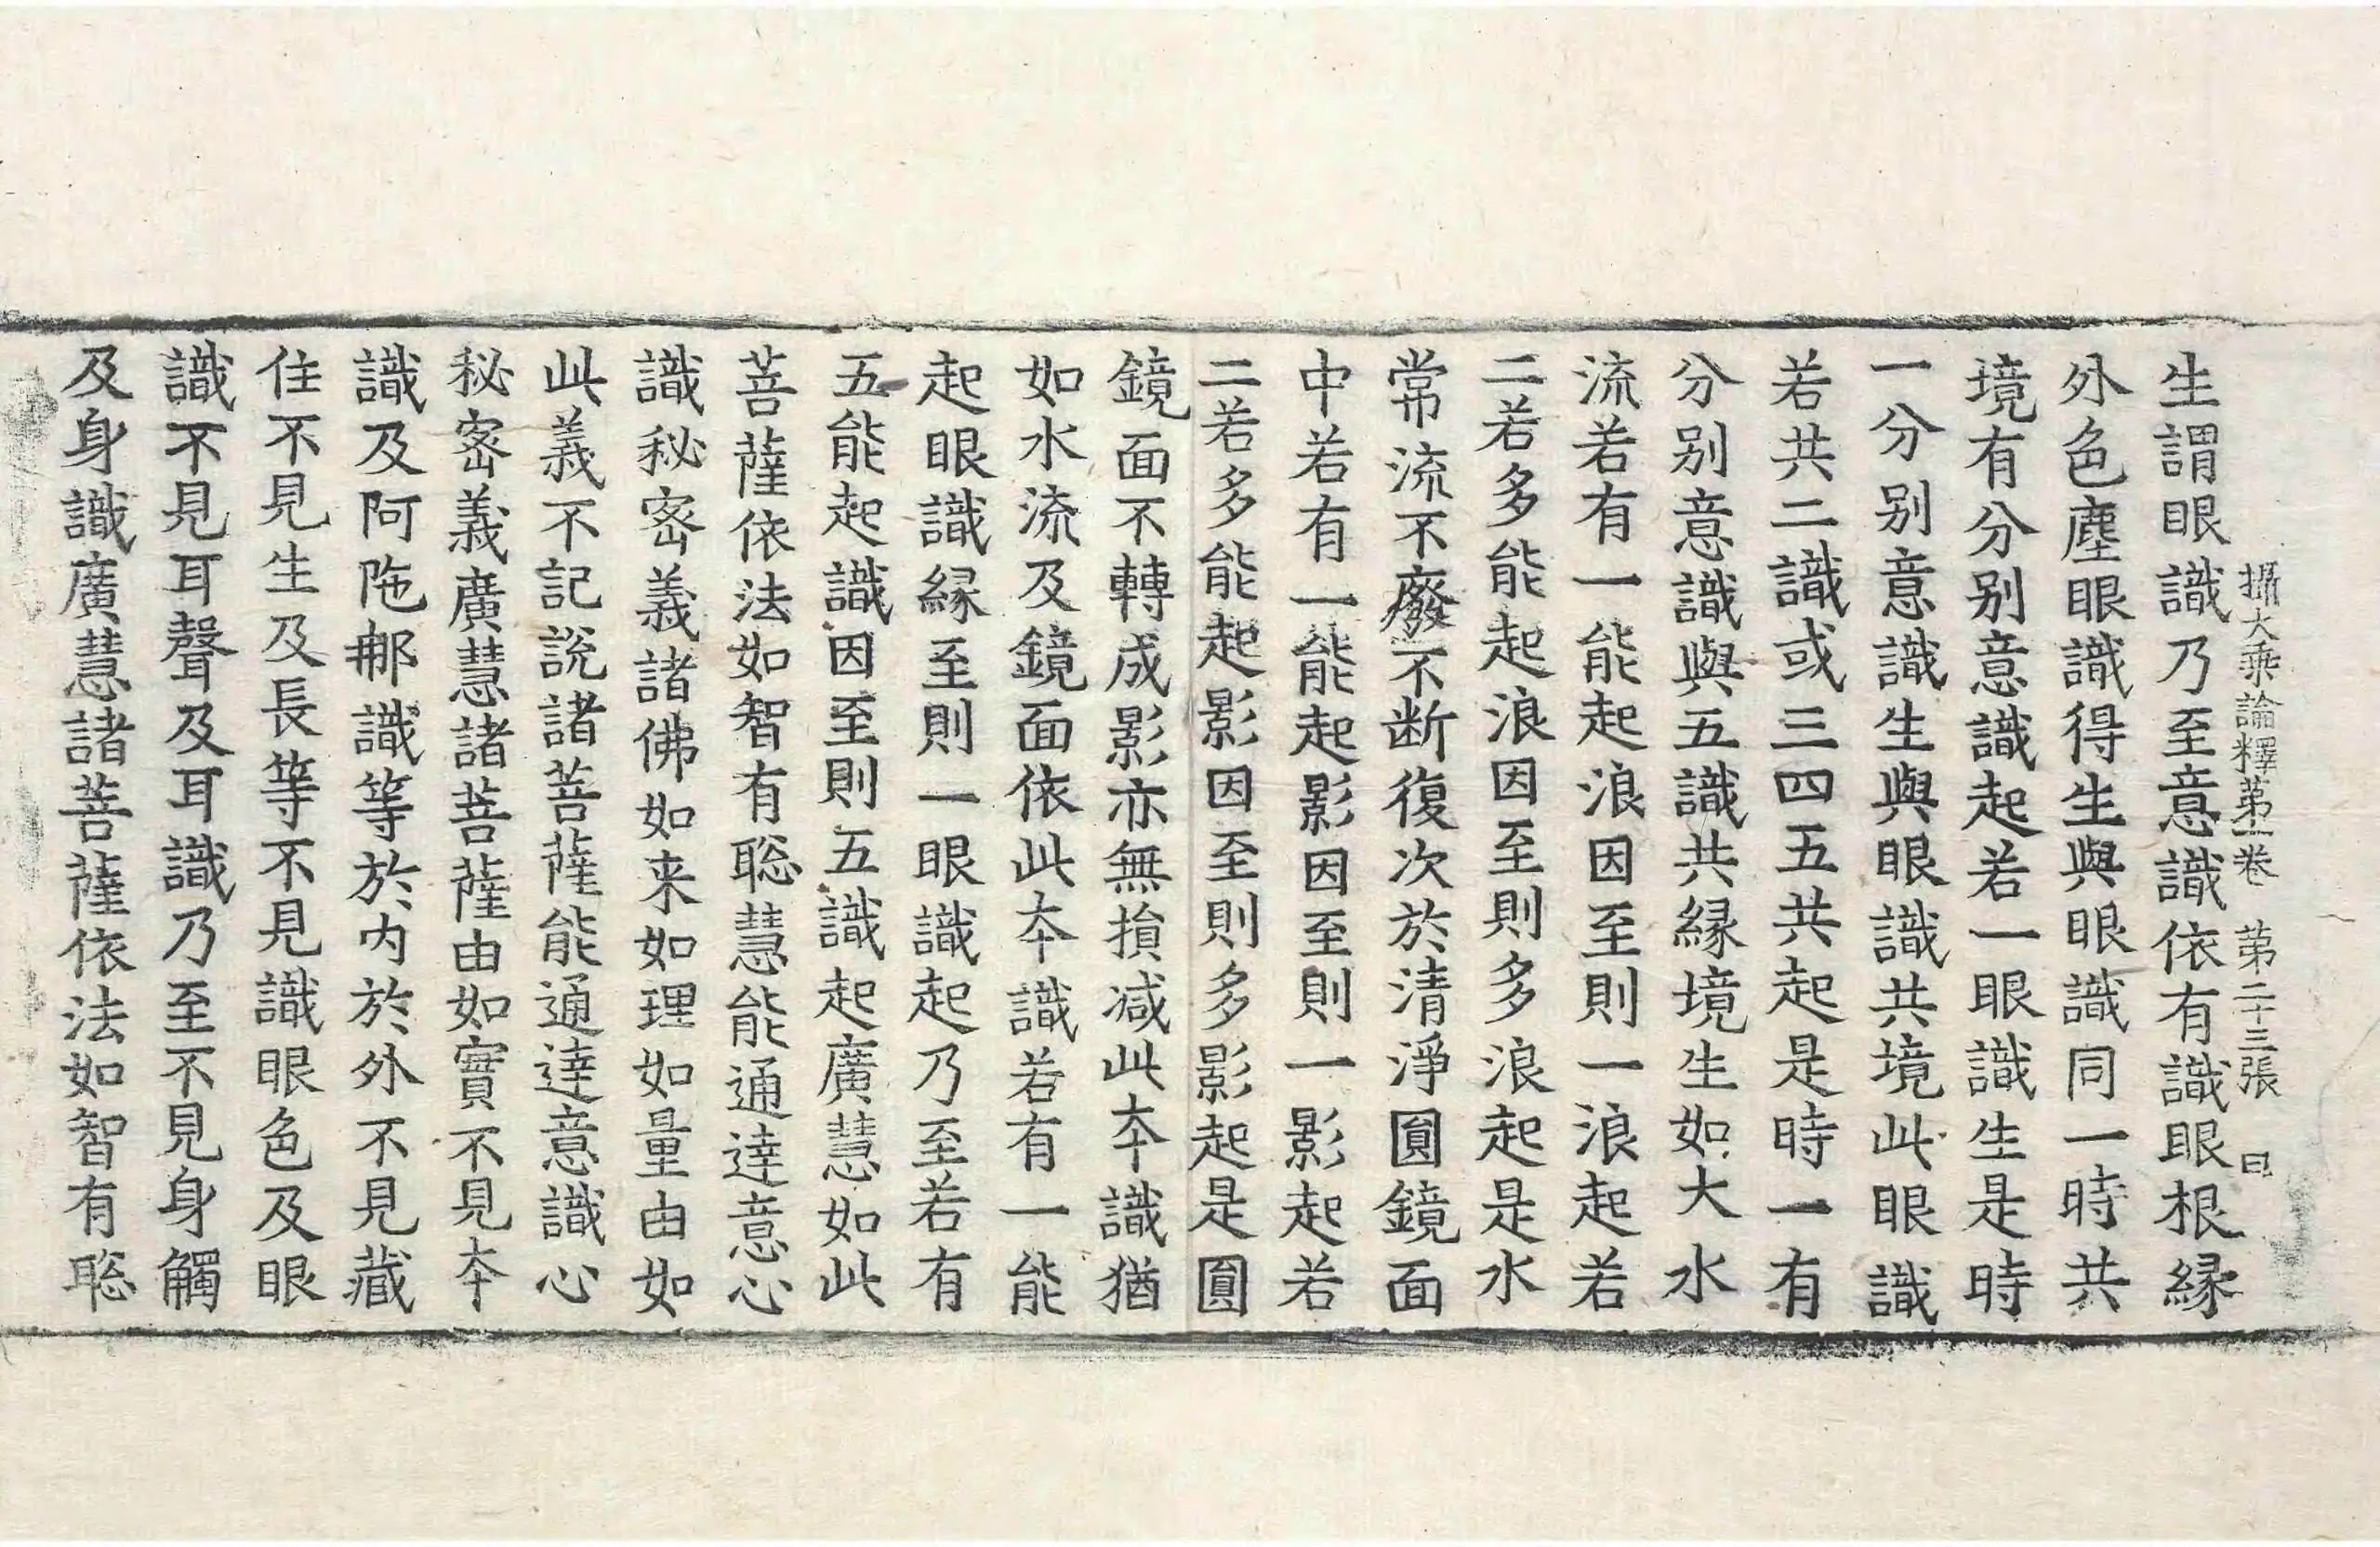 攝大乘論釋第一卷 第二十三張 曰
生謂眼識乃至意識依有識眼根縁
外色塵眼識得生與眼識同一時共
境有分别意識起若一眼識生是時
一分别意識生與眼識共境此眼識
若共二識或三四五共起是時一有
分别意識與五識共縁境生如大水
流若有一能起浪因至則一浪起若
二若多能起浪因至則多浪起是水
常流不廢不断復次於清淨圓鏡面
中若有一能起影因至則一影起若
二若多能起影因至則多影起是圓
鏡面不轉成影亦無損減此本識猶
如水流及鏡面依此本識若有一能
起眼識縁至則一眼識起乃至若有
五能起識因至則五識起廣慧如此
菩薩依法如智有聡慧能通達意心
識秘密義諸佛如来如理如量由如
此義不記説諸菩薩能通達意識心
秘密義廣慧諸菩薩由如實不見本
識及阿陁那識等於内於外不見藏
住不見生及長等不見識眼色及眼
識不見耳聲及耳識乃至不見身觸
及身識廣慧諸菩薩依法如智有聡